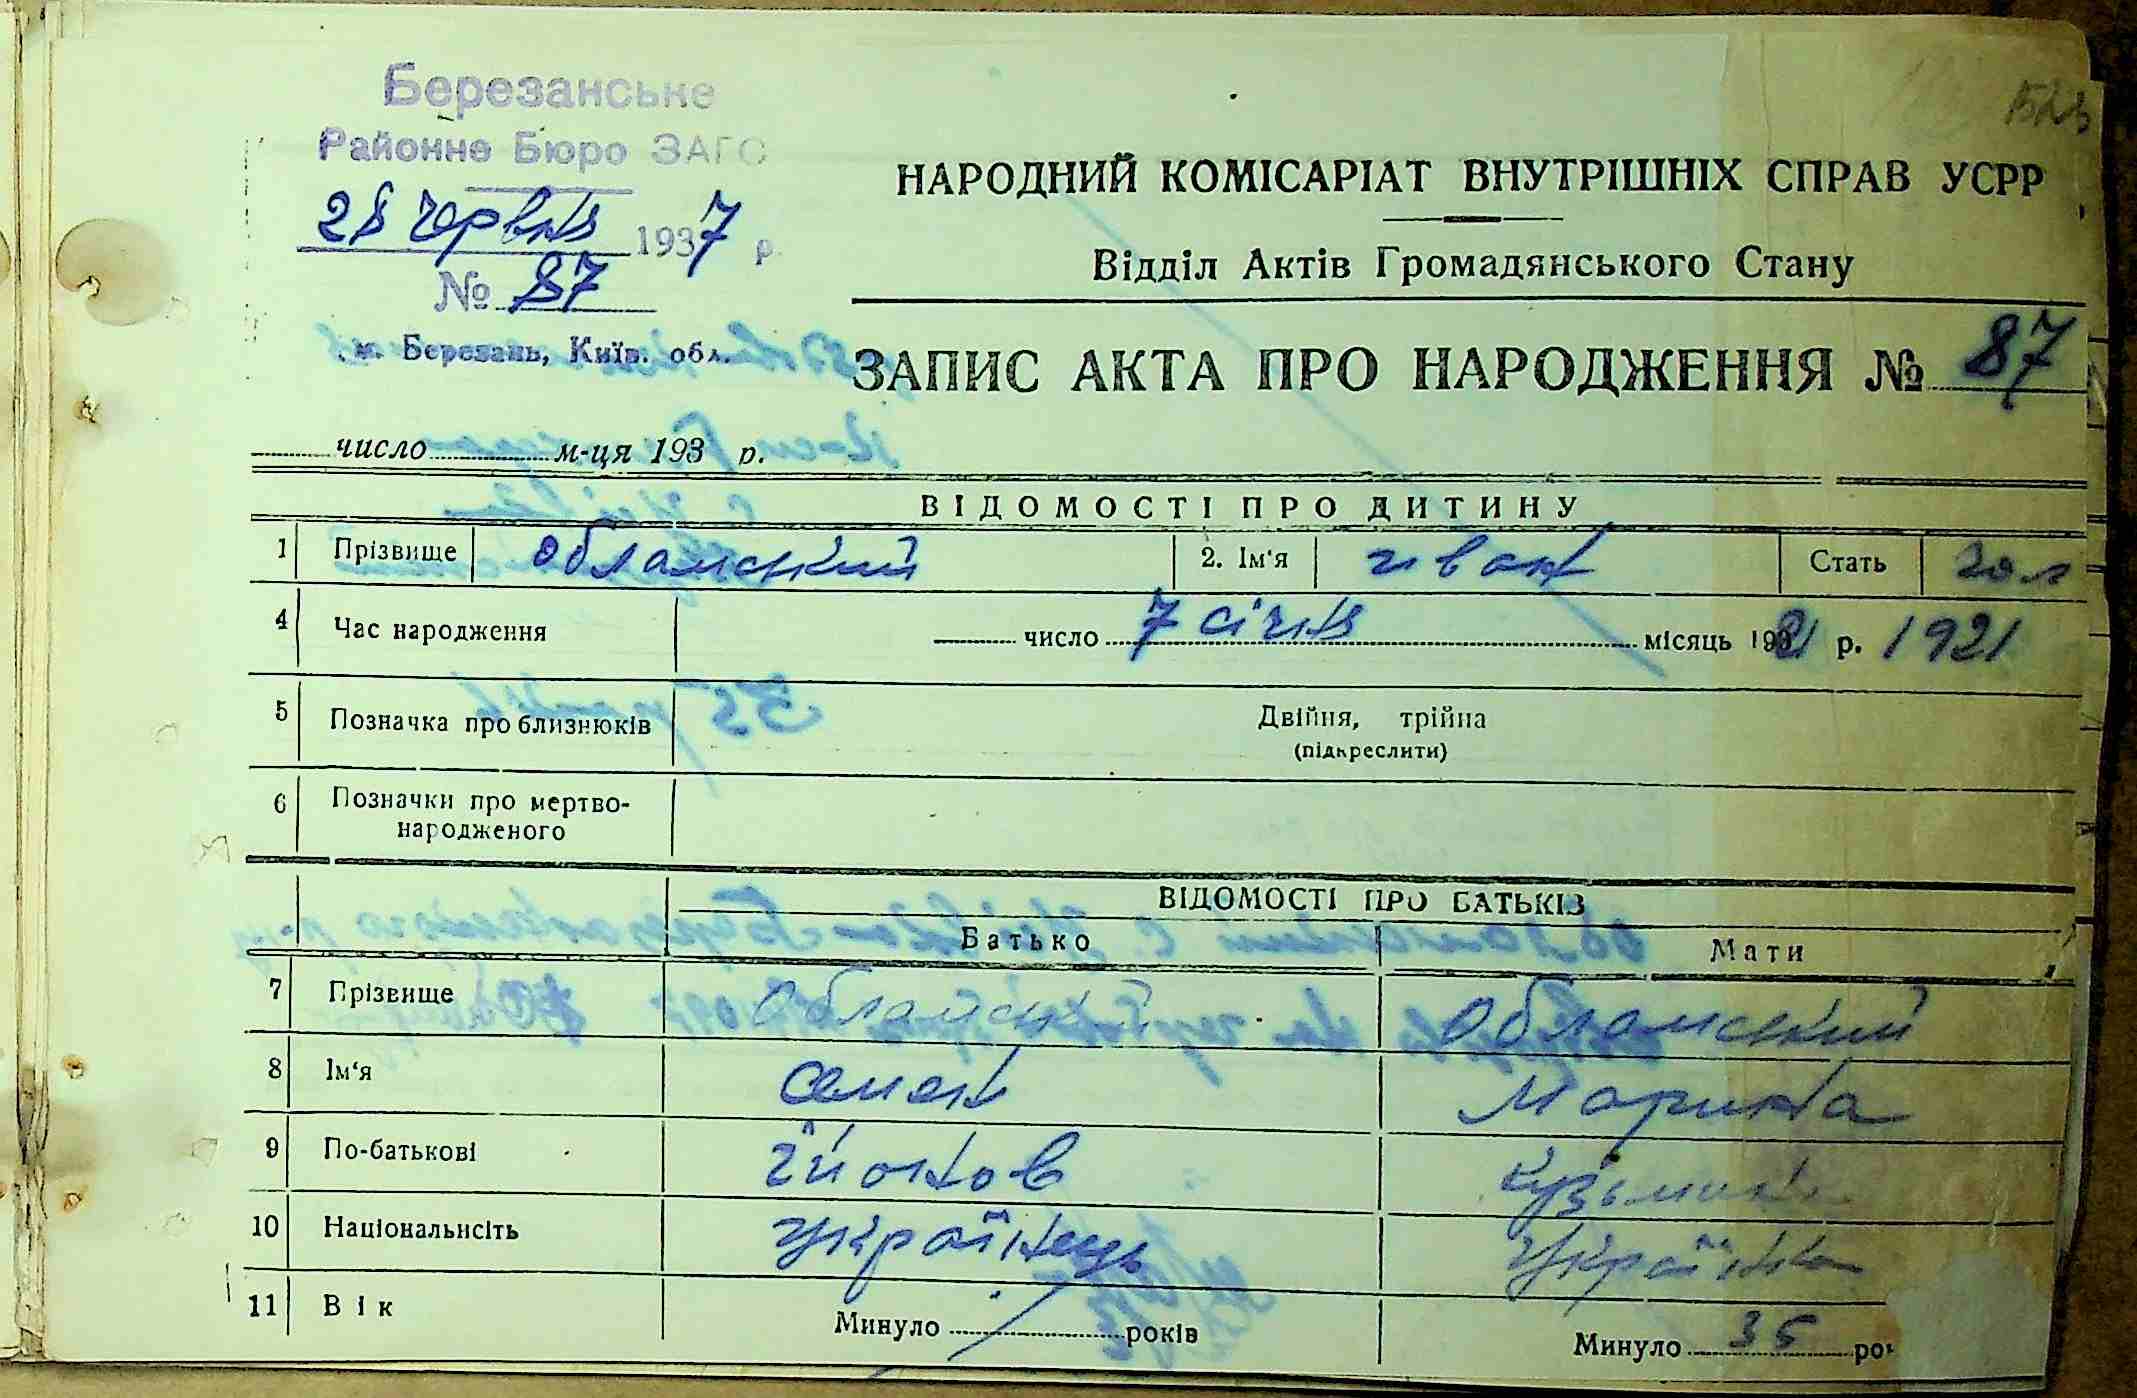 Березанське
Районне Бюро ЗАГС
28 червня 1937 р.
№ 87
м. Березань, Київ. обл.
НАРОДНИЙ КОМІСАРІАТ ВНУТРІШНІХ СПРАВ УСРР
Відділ Актів Громадянського Стану
ЗАПИС АКТА ПРО НАРОДЖЕННЯ № 87
число м-ця 193 р.
ВІДОМОСТІ ПРО ДИТИНУ
1 Прізвище Обламський 2. Ім'я Иван Стать чол
4 Час народження число 7 січня місяць 1921 р. 1921
5 Позначка про близнюків Двійня, трійна
(підкреслити)
6 Позначки про мертво-
народженого
ВІДОМОСТІ ПРО БАТЬКІВ
Батько Мати
7 Прізвище Обламський Обламский
8 Ім'я Семен Марина
9 По-батькові Йонов
10 Національність Українець Українка
11 Вік Минуло років Минуло 35 рок